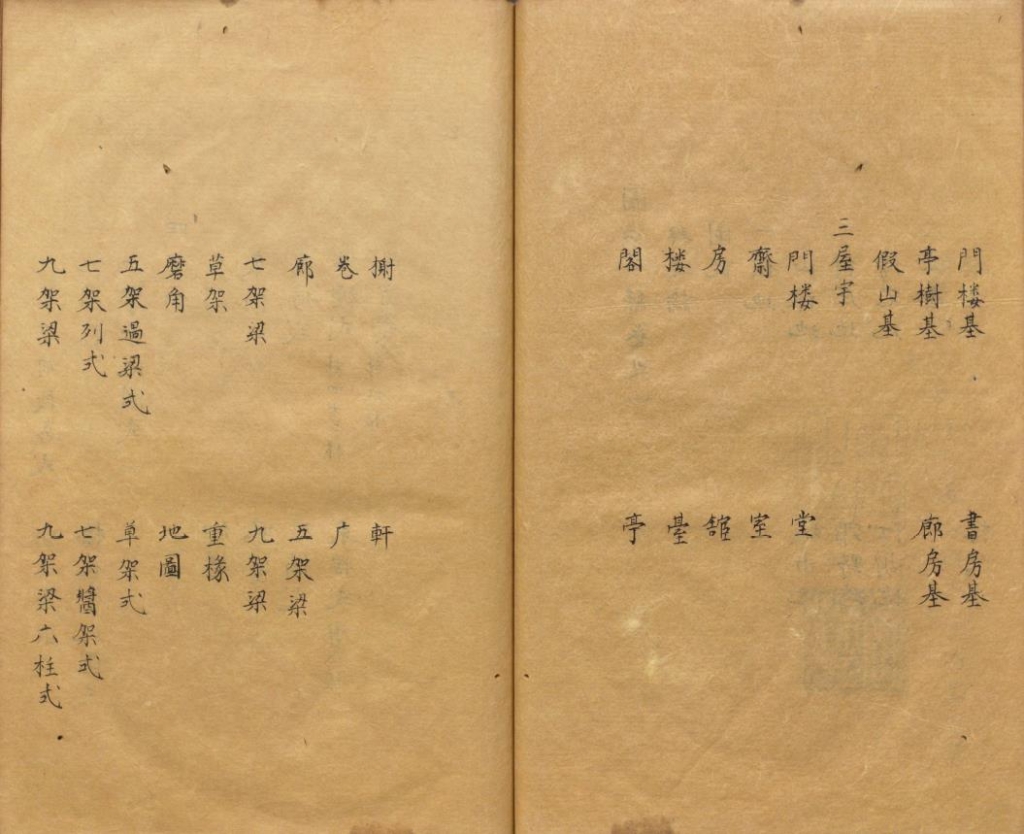 門楼基 書房基
亭榭基 廊房基
假山基
三屋宇
門楼 堂
齋 室
房 舘
楼 臺
閣 亭
榭 軒
卷 广
廊 五架梁
七架梁 九架梁
草架 重椽
磨角 地圖
五架過梁式 草架式
七架列式 七架醬架式
九架梁 九架梁六柱式